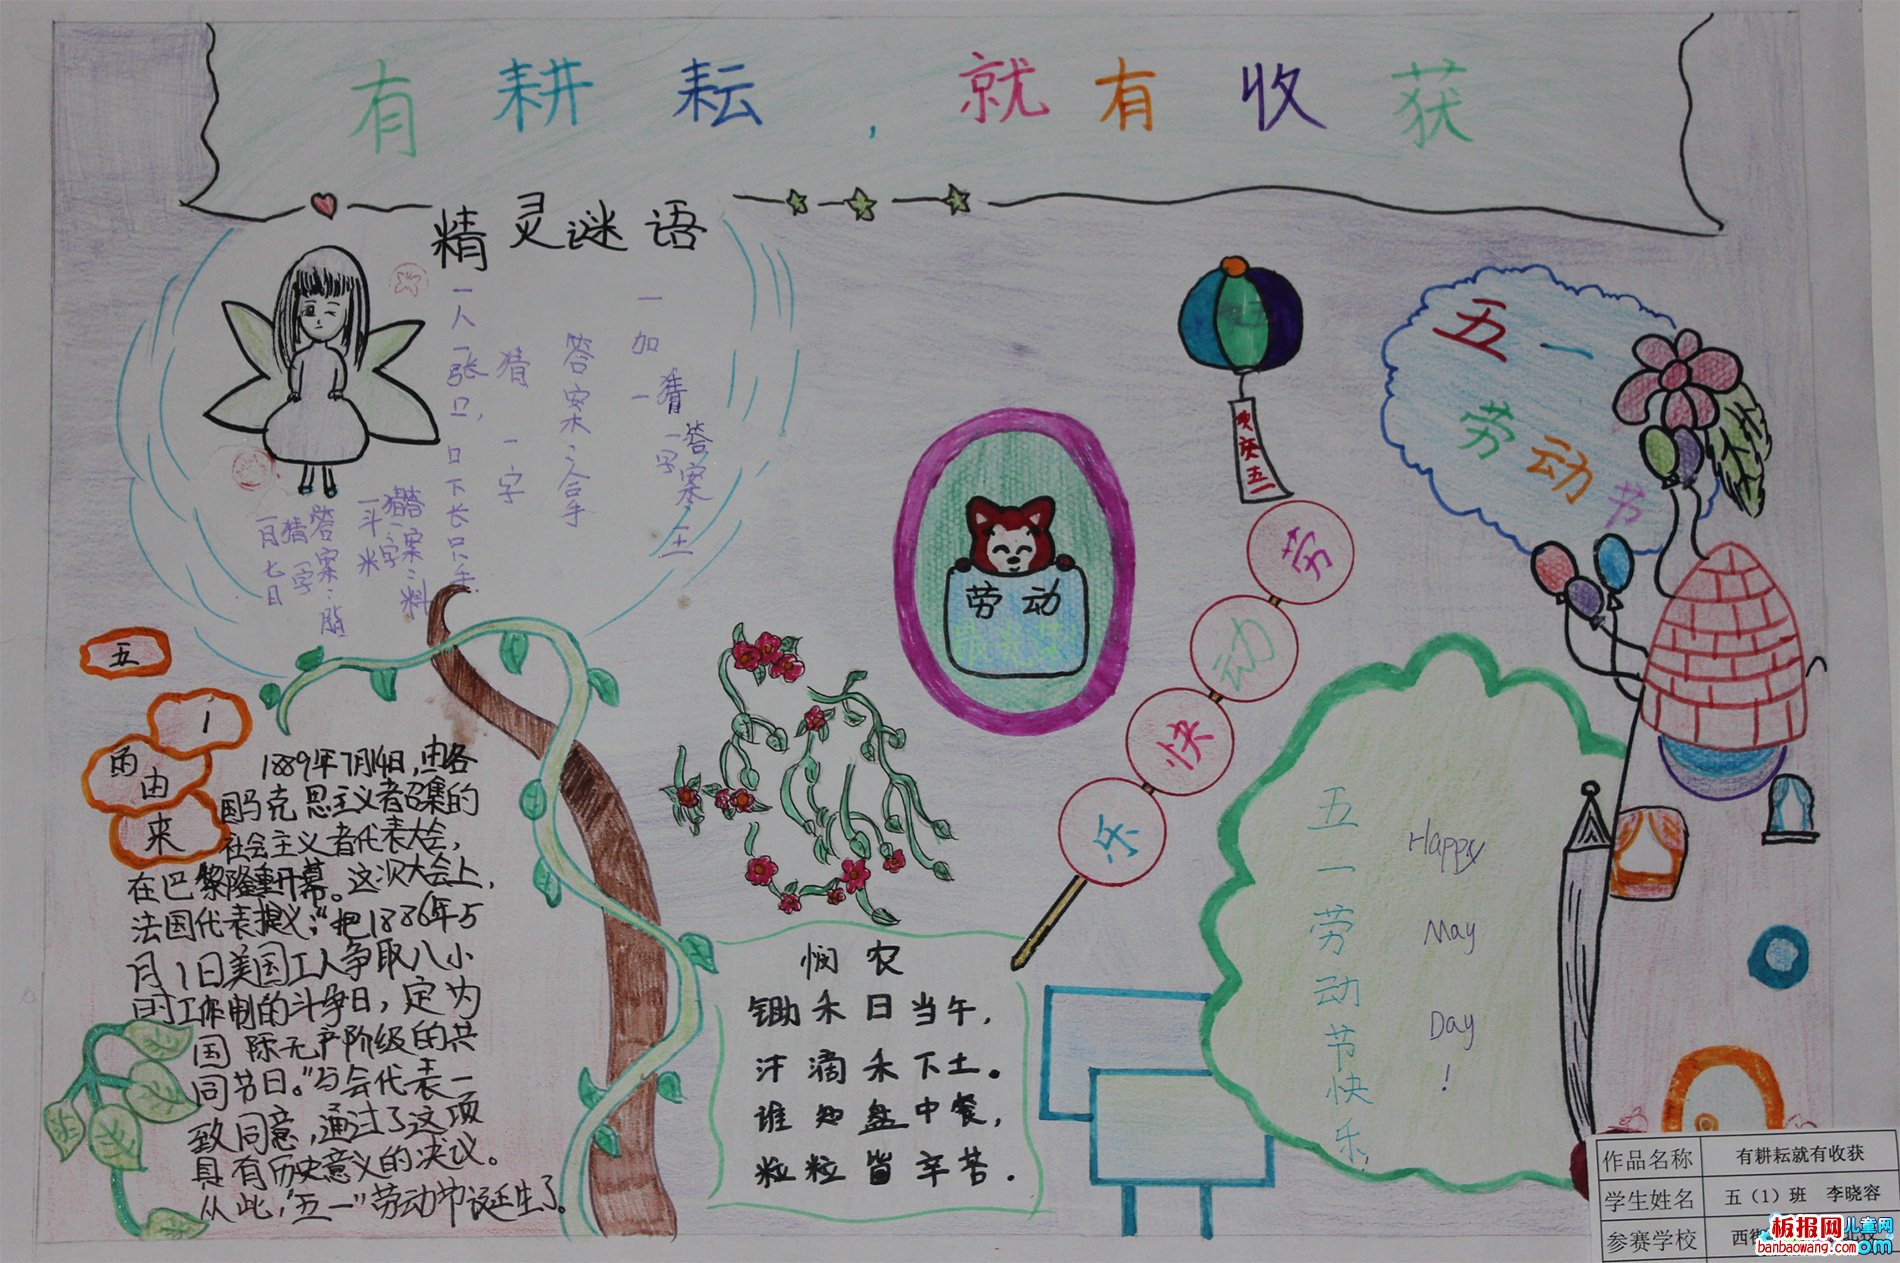 有耕耘，就有收获
精灵谜语
一人一张口，口下长只手
猜一字
答案：拿
一加一
猜一字
答案：王
一斗米
猜一字
答案：料
一月七日
猜一字
答案：脂
五
1
的
由
来
1889年7月14日，由各
国马克思主义者召集的
社会主义者代表大会，
在巴黎隆重开幕。这次大会上，
法国代表提议：“把1886年5
月1日美国工人争取八小
时工作制的斗争日，定为
国际无产阶级的共
同节日。”与会代表一
致同意，通过了这项
具有历史意义的决议。
从此，“五一”劳动节诞生了。
劳动
劳动快乐
悯农
锄禾日当午，
汗滴禾下土。
谁知盘中餐，
粒粒皆辛苦.
五一
劳动节
五一劳动节快乐！
Happy
May
Day
!
作品名称 有耕耘就有收获
学生姓名 五（1）班 李晓容
参赛学校
板报网
儿童网
banbaowang.com